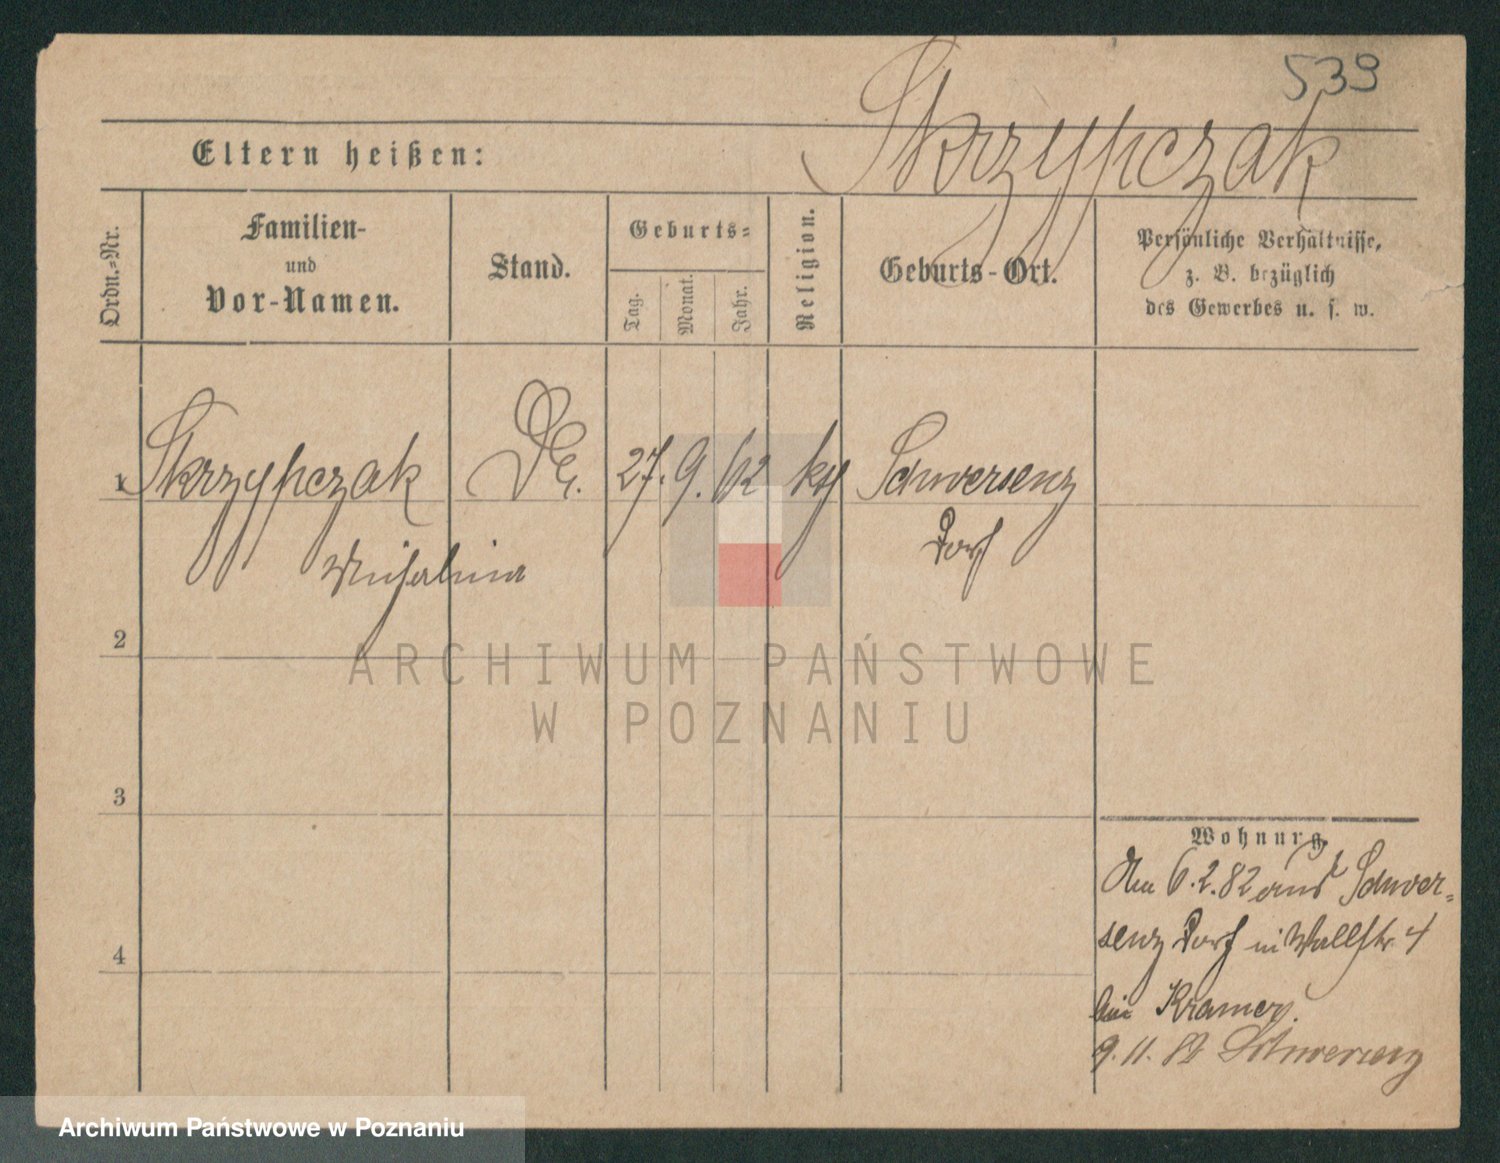 539
Skrzypczak
Eltern heißen:
Ordn.-Nr.
Familien-
und
Vor-Namen.
Stand.
Geburts-
Tag.
Monat.
Jahr.
Religion.
Geburts-Ort.
Persönliche Verhältnisse,
z. B. bezüglich
des Gewerbes u. s. w.
1 Skrzypczak 27. 9. 62 kth Schwersenz
Dorf
2
3
4
Wohnung.
Am 6.2.82 aus Schwer-
senz Dorf in Wallstr. 4
bei Kramer.
9. 11. 82 Schwersenz
ARCHIWUM PAŃSTWOWE
W POZNANIU
Archiwum Państwowe w Poznaniu